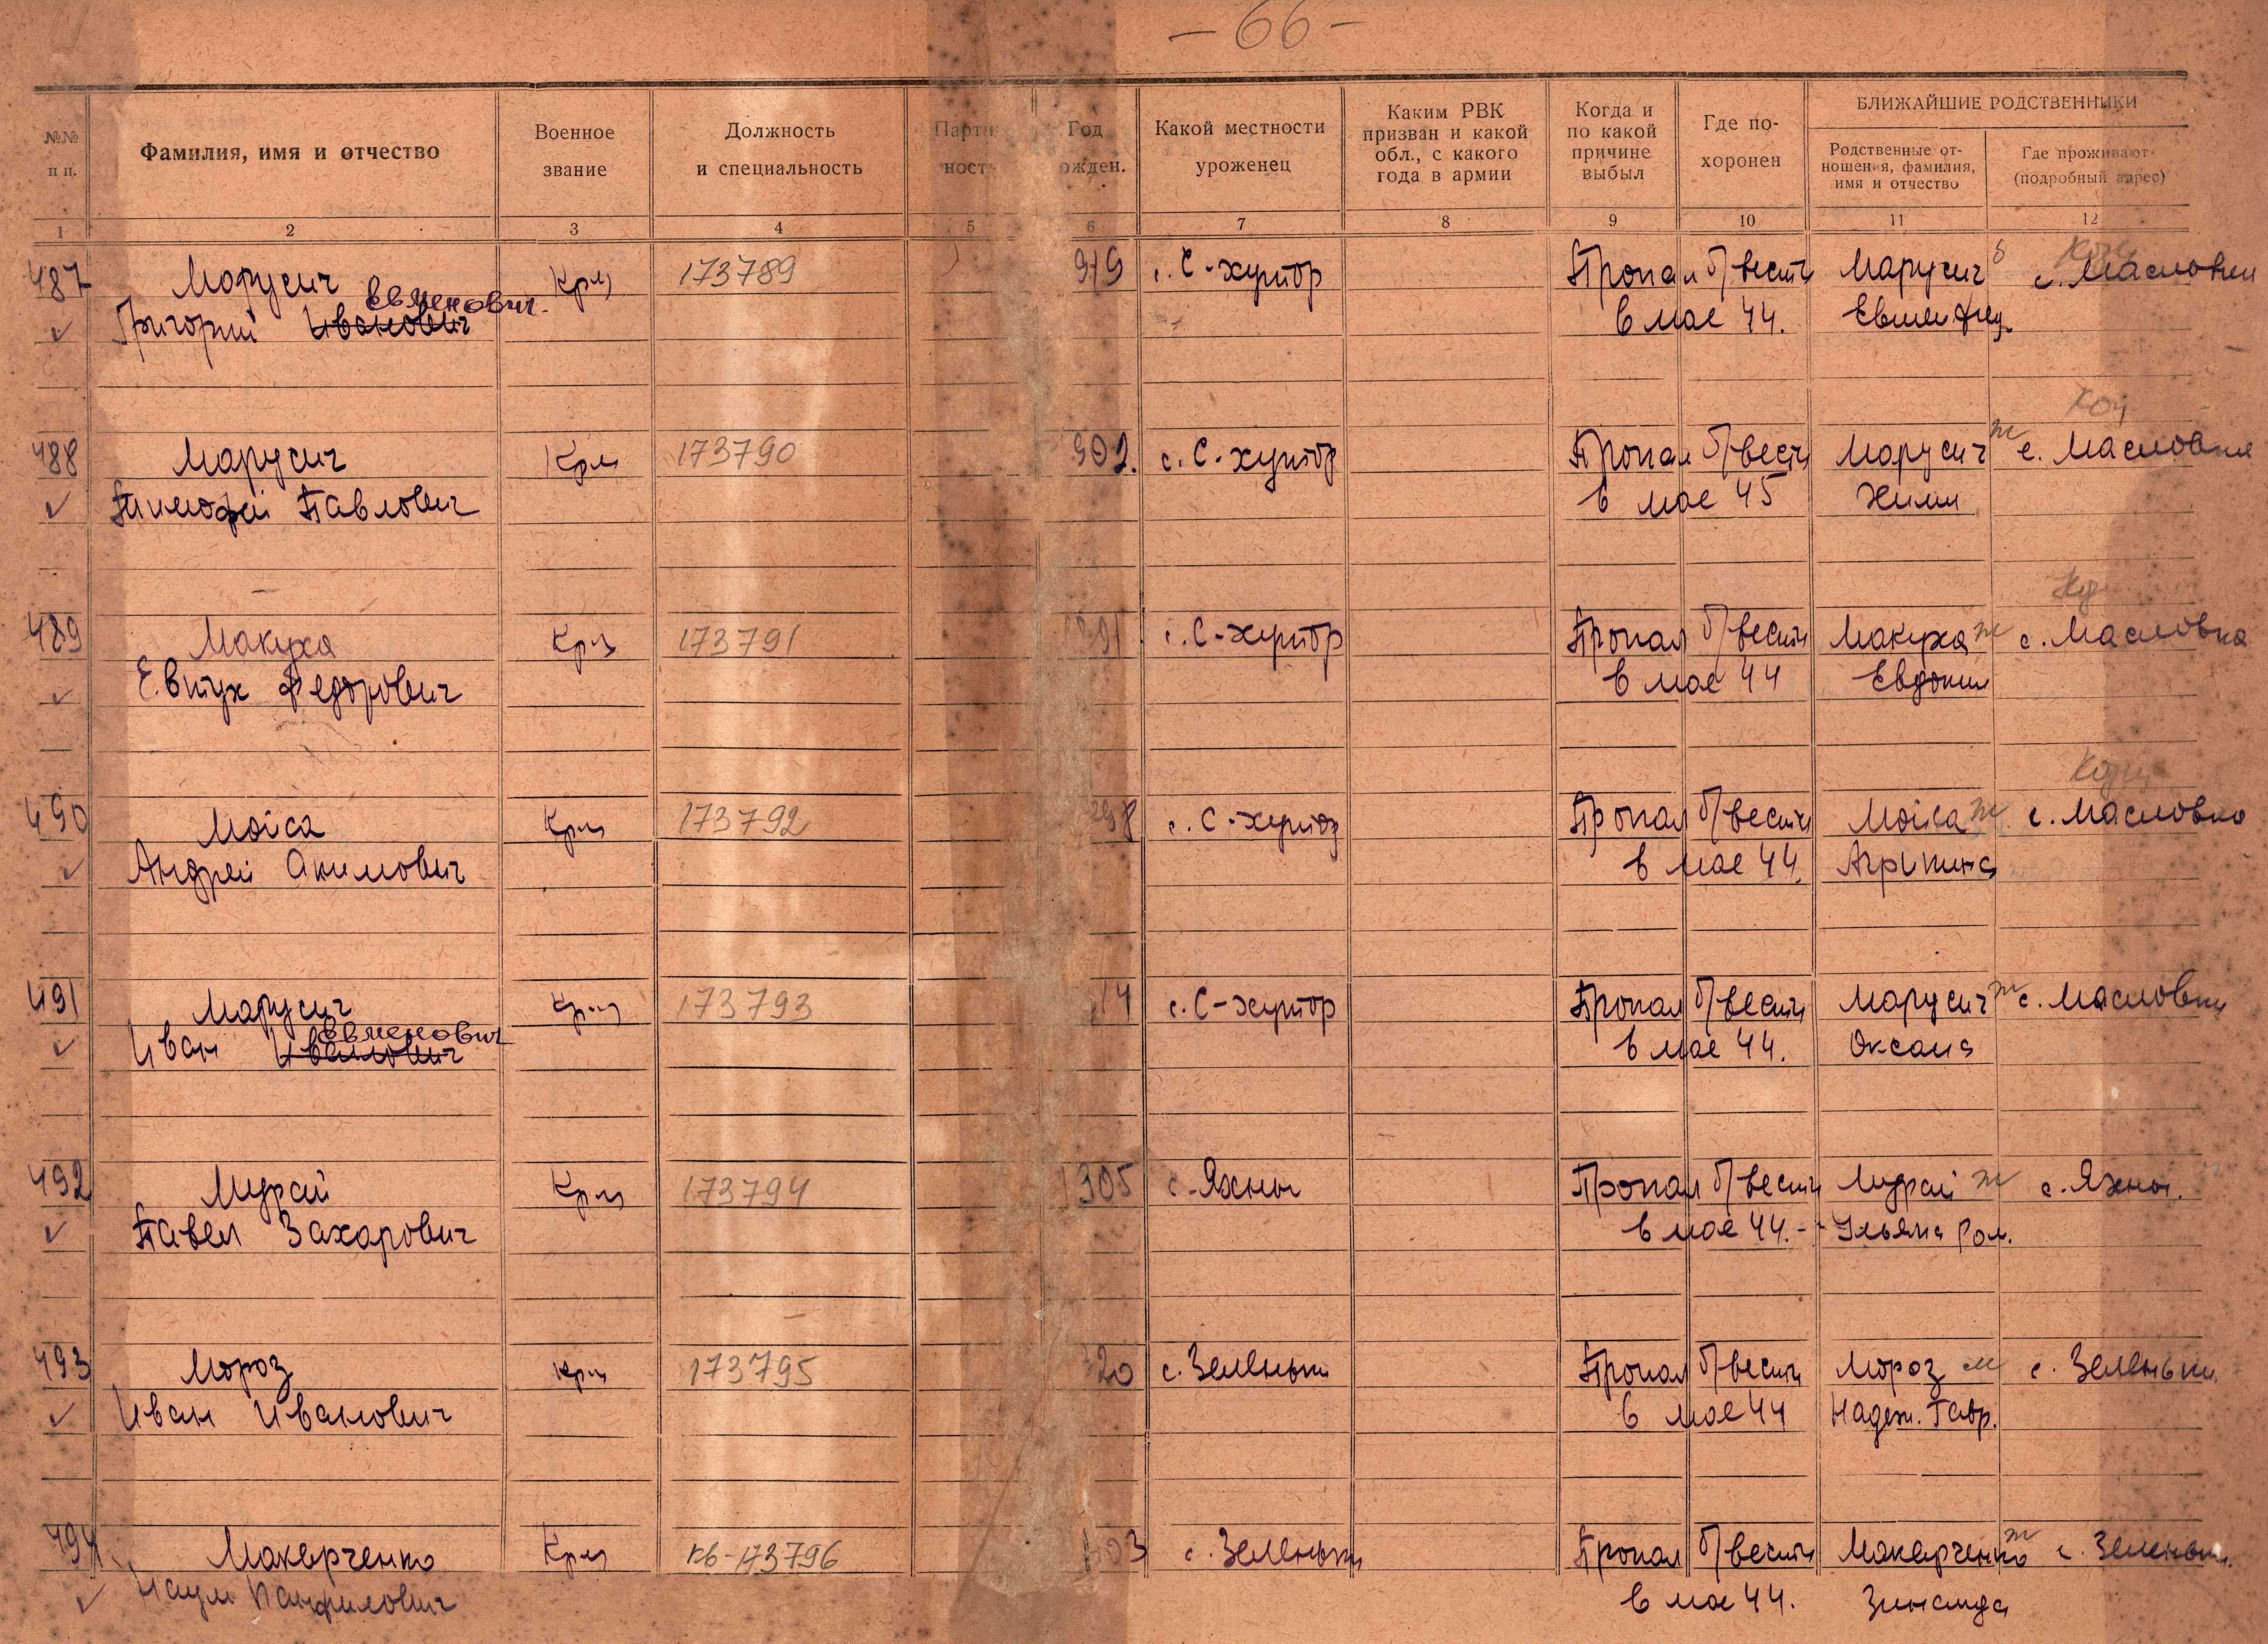 - 66 -
№№ п п.
Фамилия, имя и отчество
Военное звание
Должность и специальность
Год
Какой местности уроженец
Каким РВК призван и какой обл., с какого года в армии
Когда и по какой причине выбыл
Где похоронен
БЛИЖАЙШИЕ РОДСТВЕННИКИ
Родственные отношения, фамилия, имя и отчество
Где проживают (подробный адрес)
1 2 3 4 5 6 7 8 9 10 11 12
487 Марусич Кр-ц 173789 919 с. С-хутор Пропал б/вести Марусич с. Масловка
Григорий Иванович Евменович в мае 44. Евмен Фед.
488 Марусич Кр-ц 173790 902. с. С-хутор Пропал б/вести Марусич ж с. Масловка
Тимофей Павлович в мае 45
489 Макуха Кр-ц 173791 с. С-хутор Пропал б/вести Макуха ж с. Масловка
Евтух Федорович в мае 44
490 Мойса Кр-ц 173792 98 с. С-хутор Пропал б/вести Мойса ж с. Масловка
Андрей Акимович в мае 44. Агрипина
491 Марусич Кр-ц 173793 14 с. С-хутор Пропал б/вести Марусич ж с. Масловка
Иван Иванович Евменович в мае 44. Оксана
492 Мурай Кр-ц 173794 905 с. Яхны Пропал б/вести Мурай ж с. Яхны.
Павел Захарович в мае 44. - Ульяна Ром.
493 Мороз Кр-ц 173795 20 с. Зеленьки Пропал б/вести Мороз м с. Зеленьки.
Иван Иванович в мае 44 Надеж. Гавр.
494 Макарченко Кр-ц кв-173796 903 с. Зеленьки Пропал б/вести Макарченко ж с. Зеленьки.
Наум Панфилович в мае 44. Зинаида